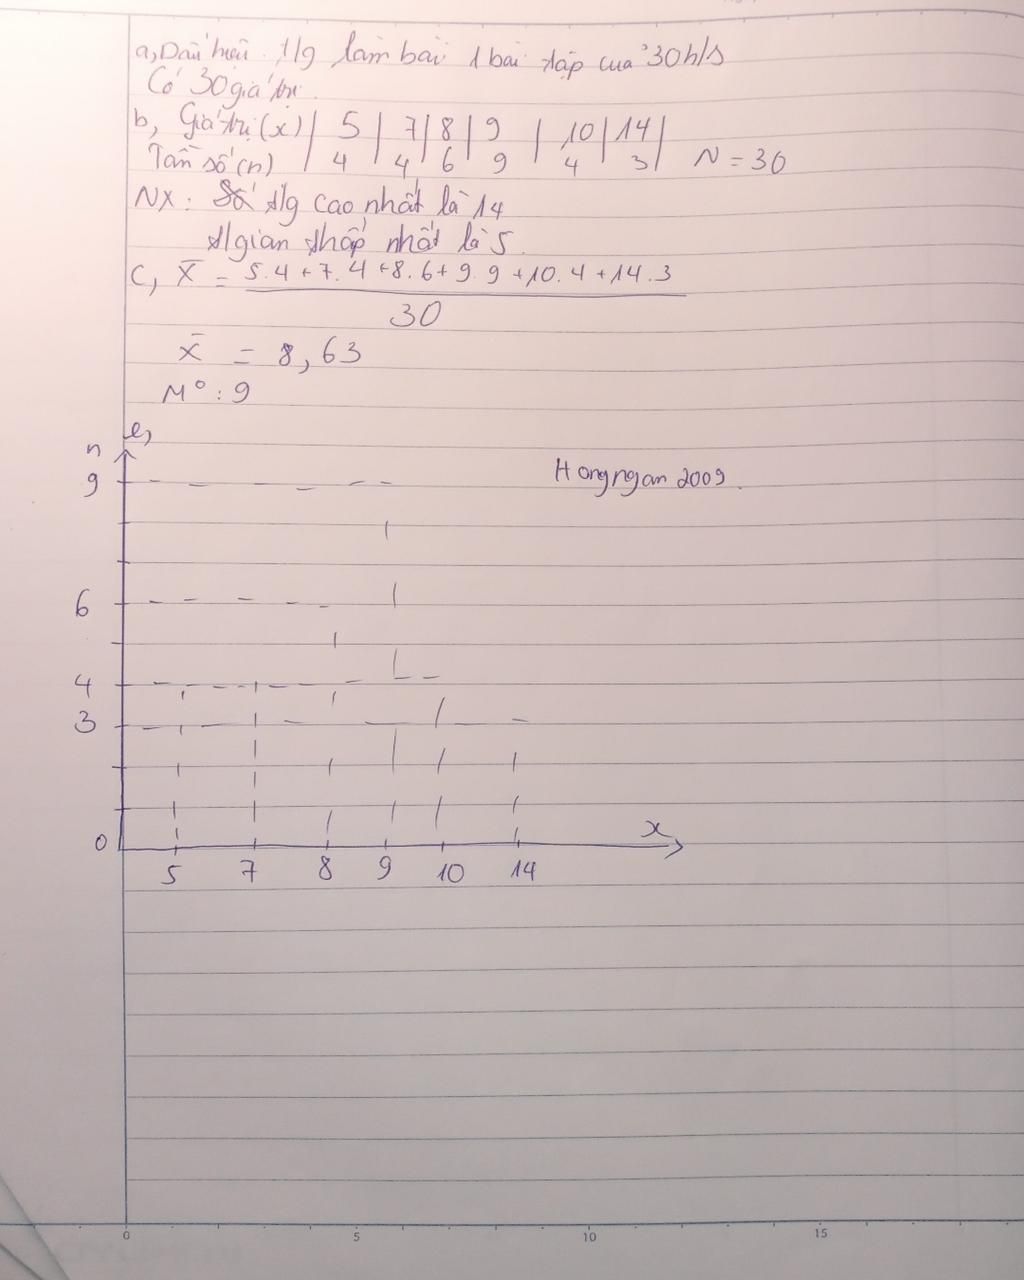 a, Dấu hiệu: t/g làm bài 1 bài tập của 30 h/s
Có 30 giá trị.
b, Giá trị (x) | 5 | 7 | 8 | 9 | 10 | 14 |
Tần số (n) | 4 | 4 | 6 | 9 | 4 | 3 | N = 30
NX: Số t/g cao nhất là 14
t/gian thấp nhất là 5.
c, X̄ = 5.4+7.4+8.6+9.9+10.4+14.3
30
x̄ = 8,63
M° : 9
e,
n
9
Hongngan 2009.
6
4
3
0
x
5 7 8 9 10 14
0 5 10 15